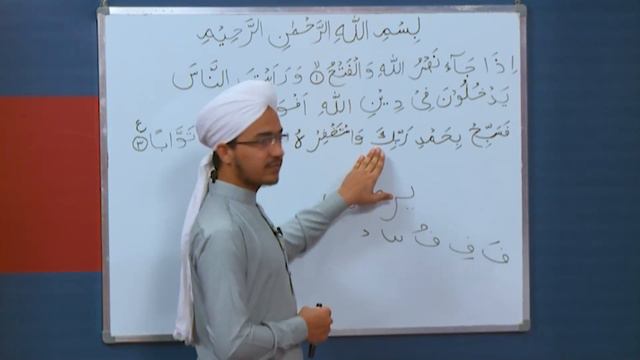 بِسْمِ اللهِ الرَّحْمٰنِ الرَّحِيْمِ
اِذَا جَآءَ نَصْرُ اللهِ وَالْفَتْحُ ۙ۱ وَرَاَيْتَ النَّاسَ
يَدْخُلُوْنَ فِىْ دِيْنِ اللهِ
فَسَبِّحْ بِحَمْدِ رَبِّكَ وَاسْتَغْفِرْهُ تَوَّابًا ۳ ع
فَ فِ فُ